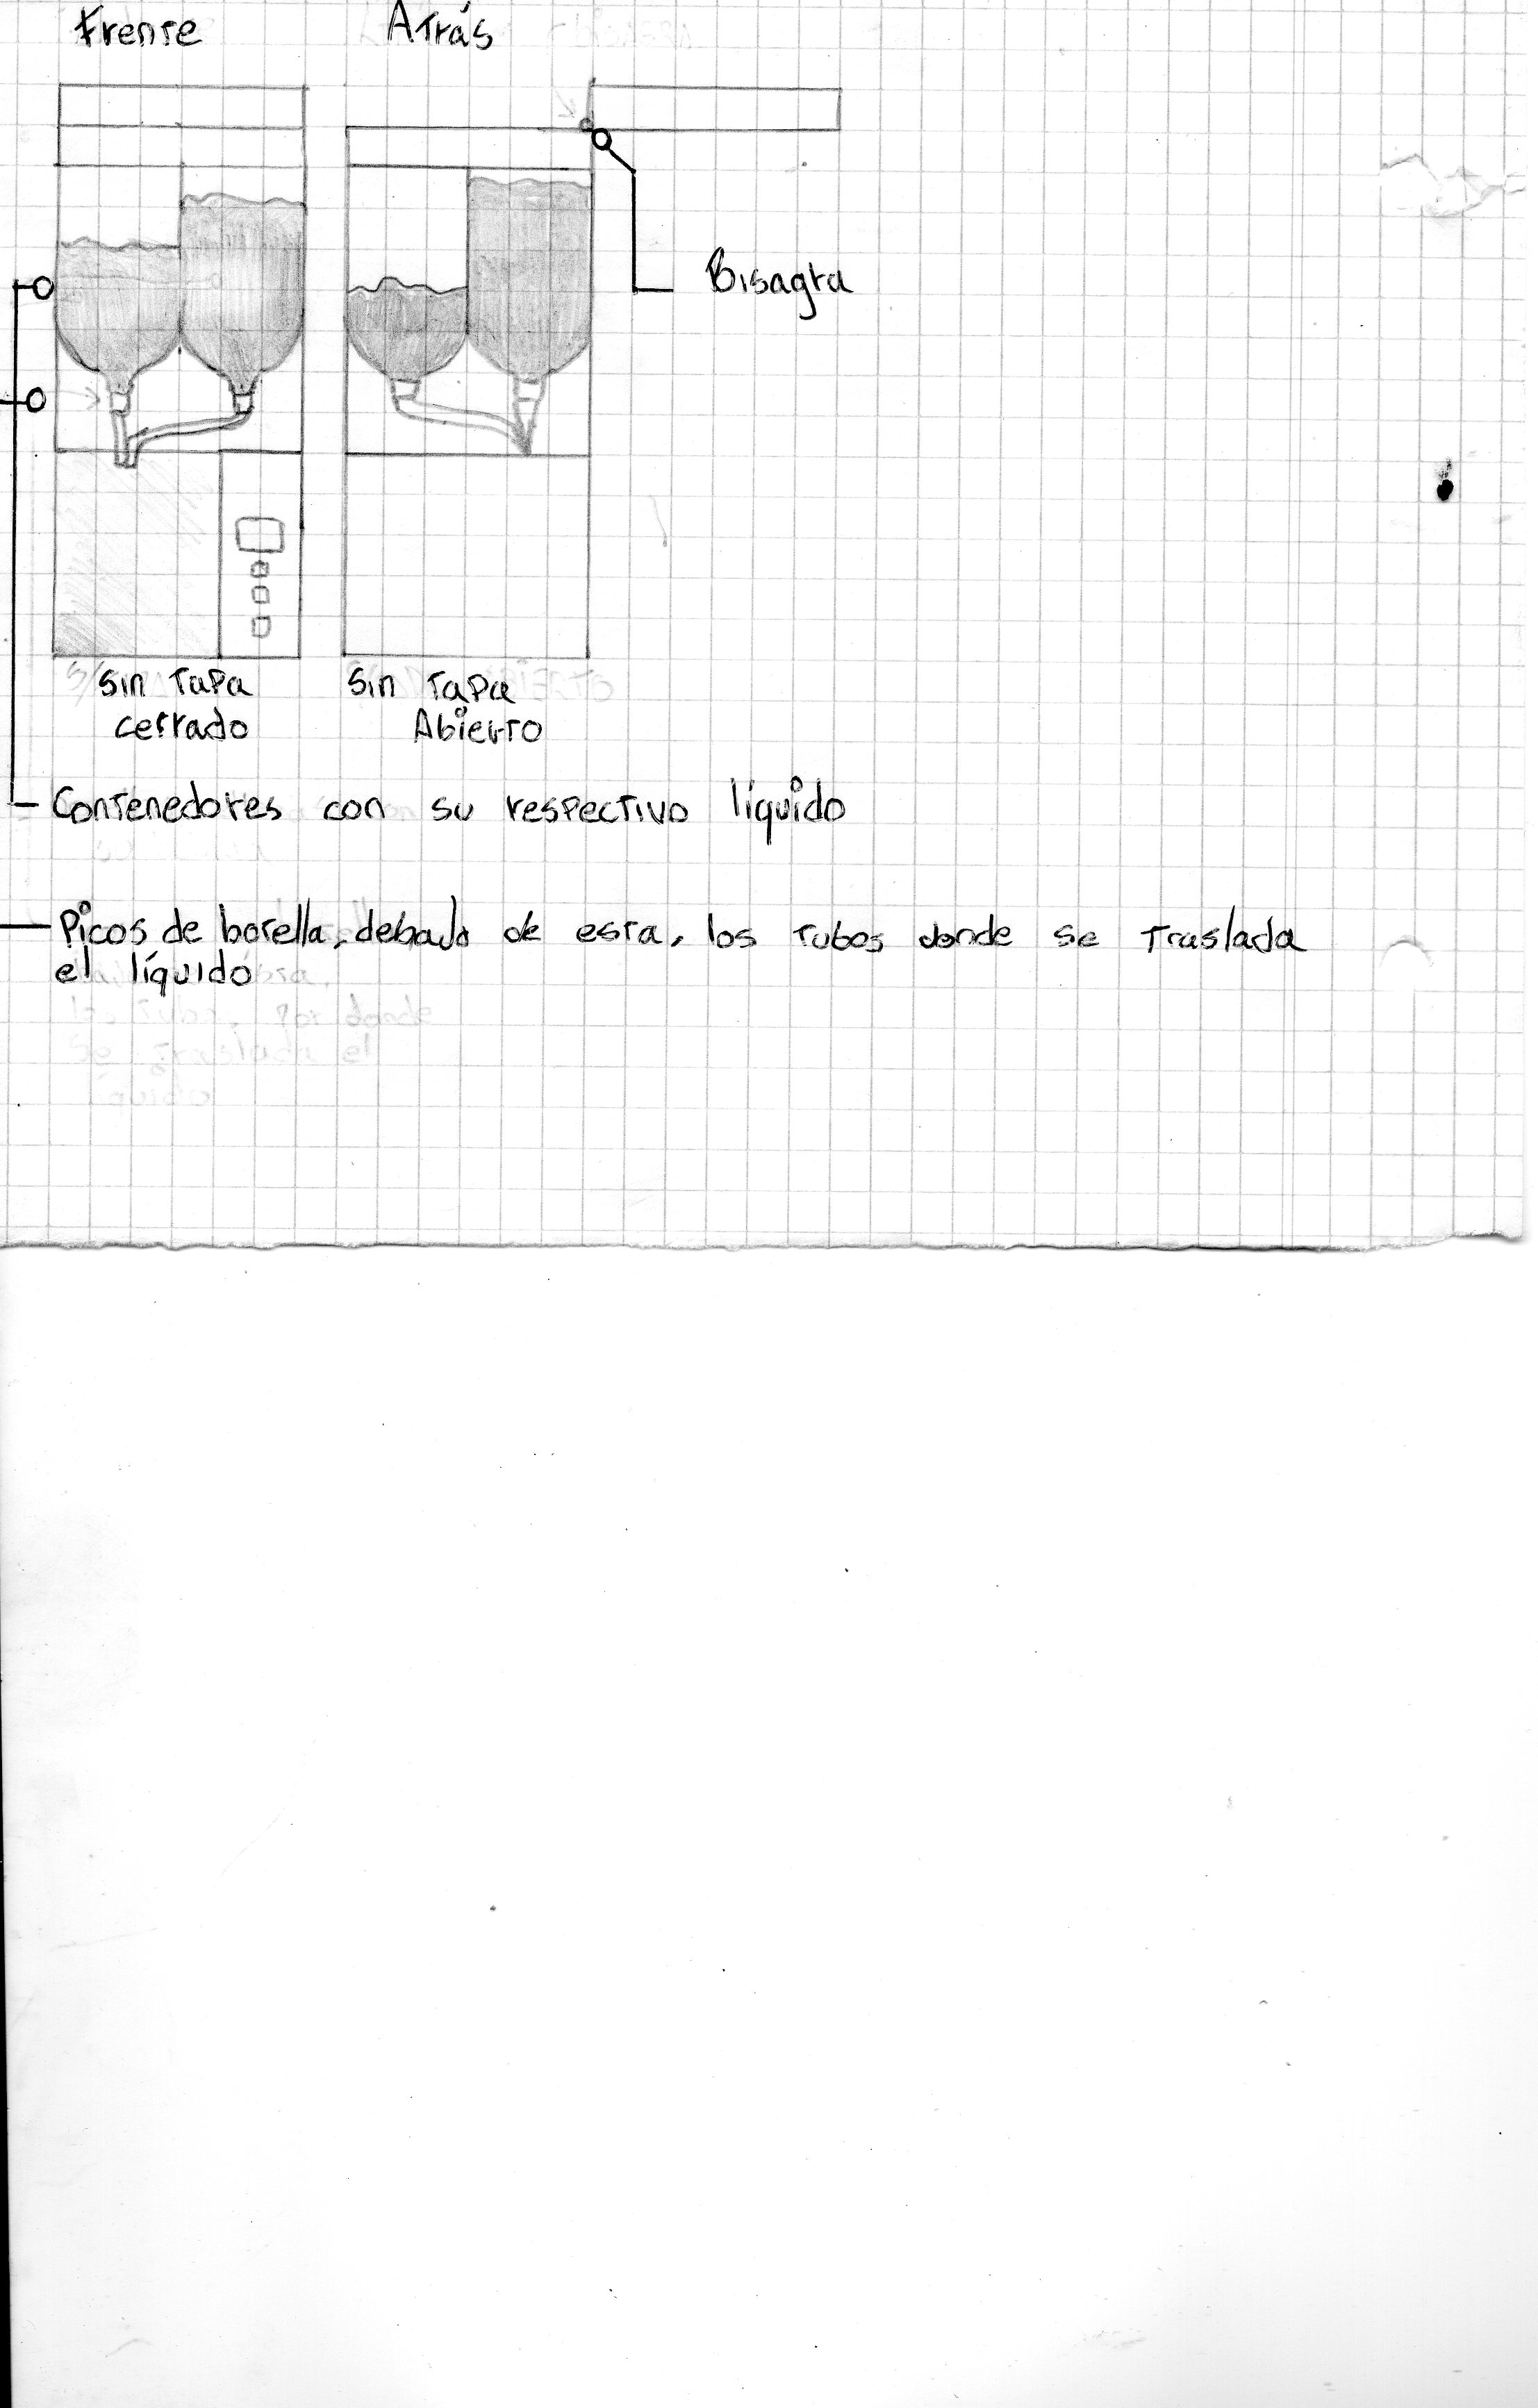 Frente
Atrás
Bisagra
Sin Tapa
cerrado
Sin Tapa
Abierto
Contenedores con su respectivo líquido
Picos de botella, debajo de esta, los tubos donde se traslada
el líquido